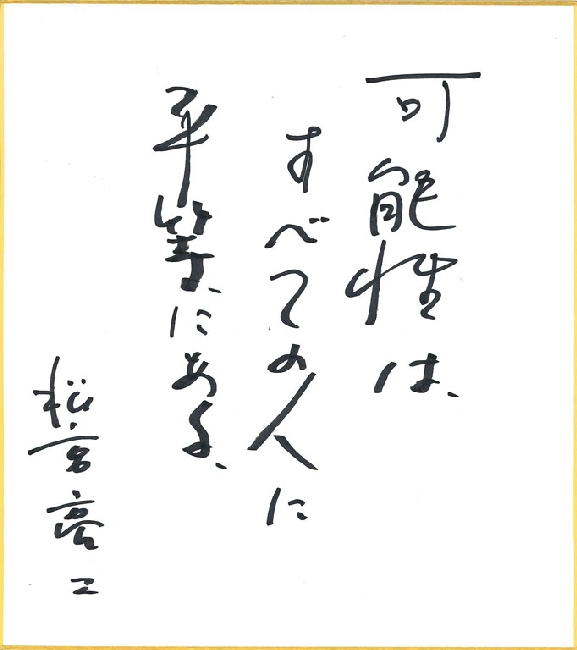 可能性は、
すべての人に
平等にある、
松高亮二